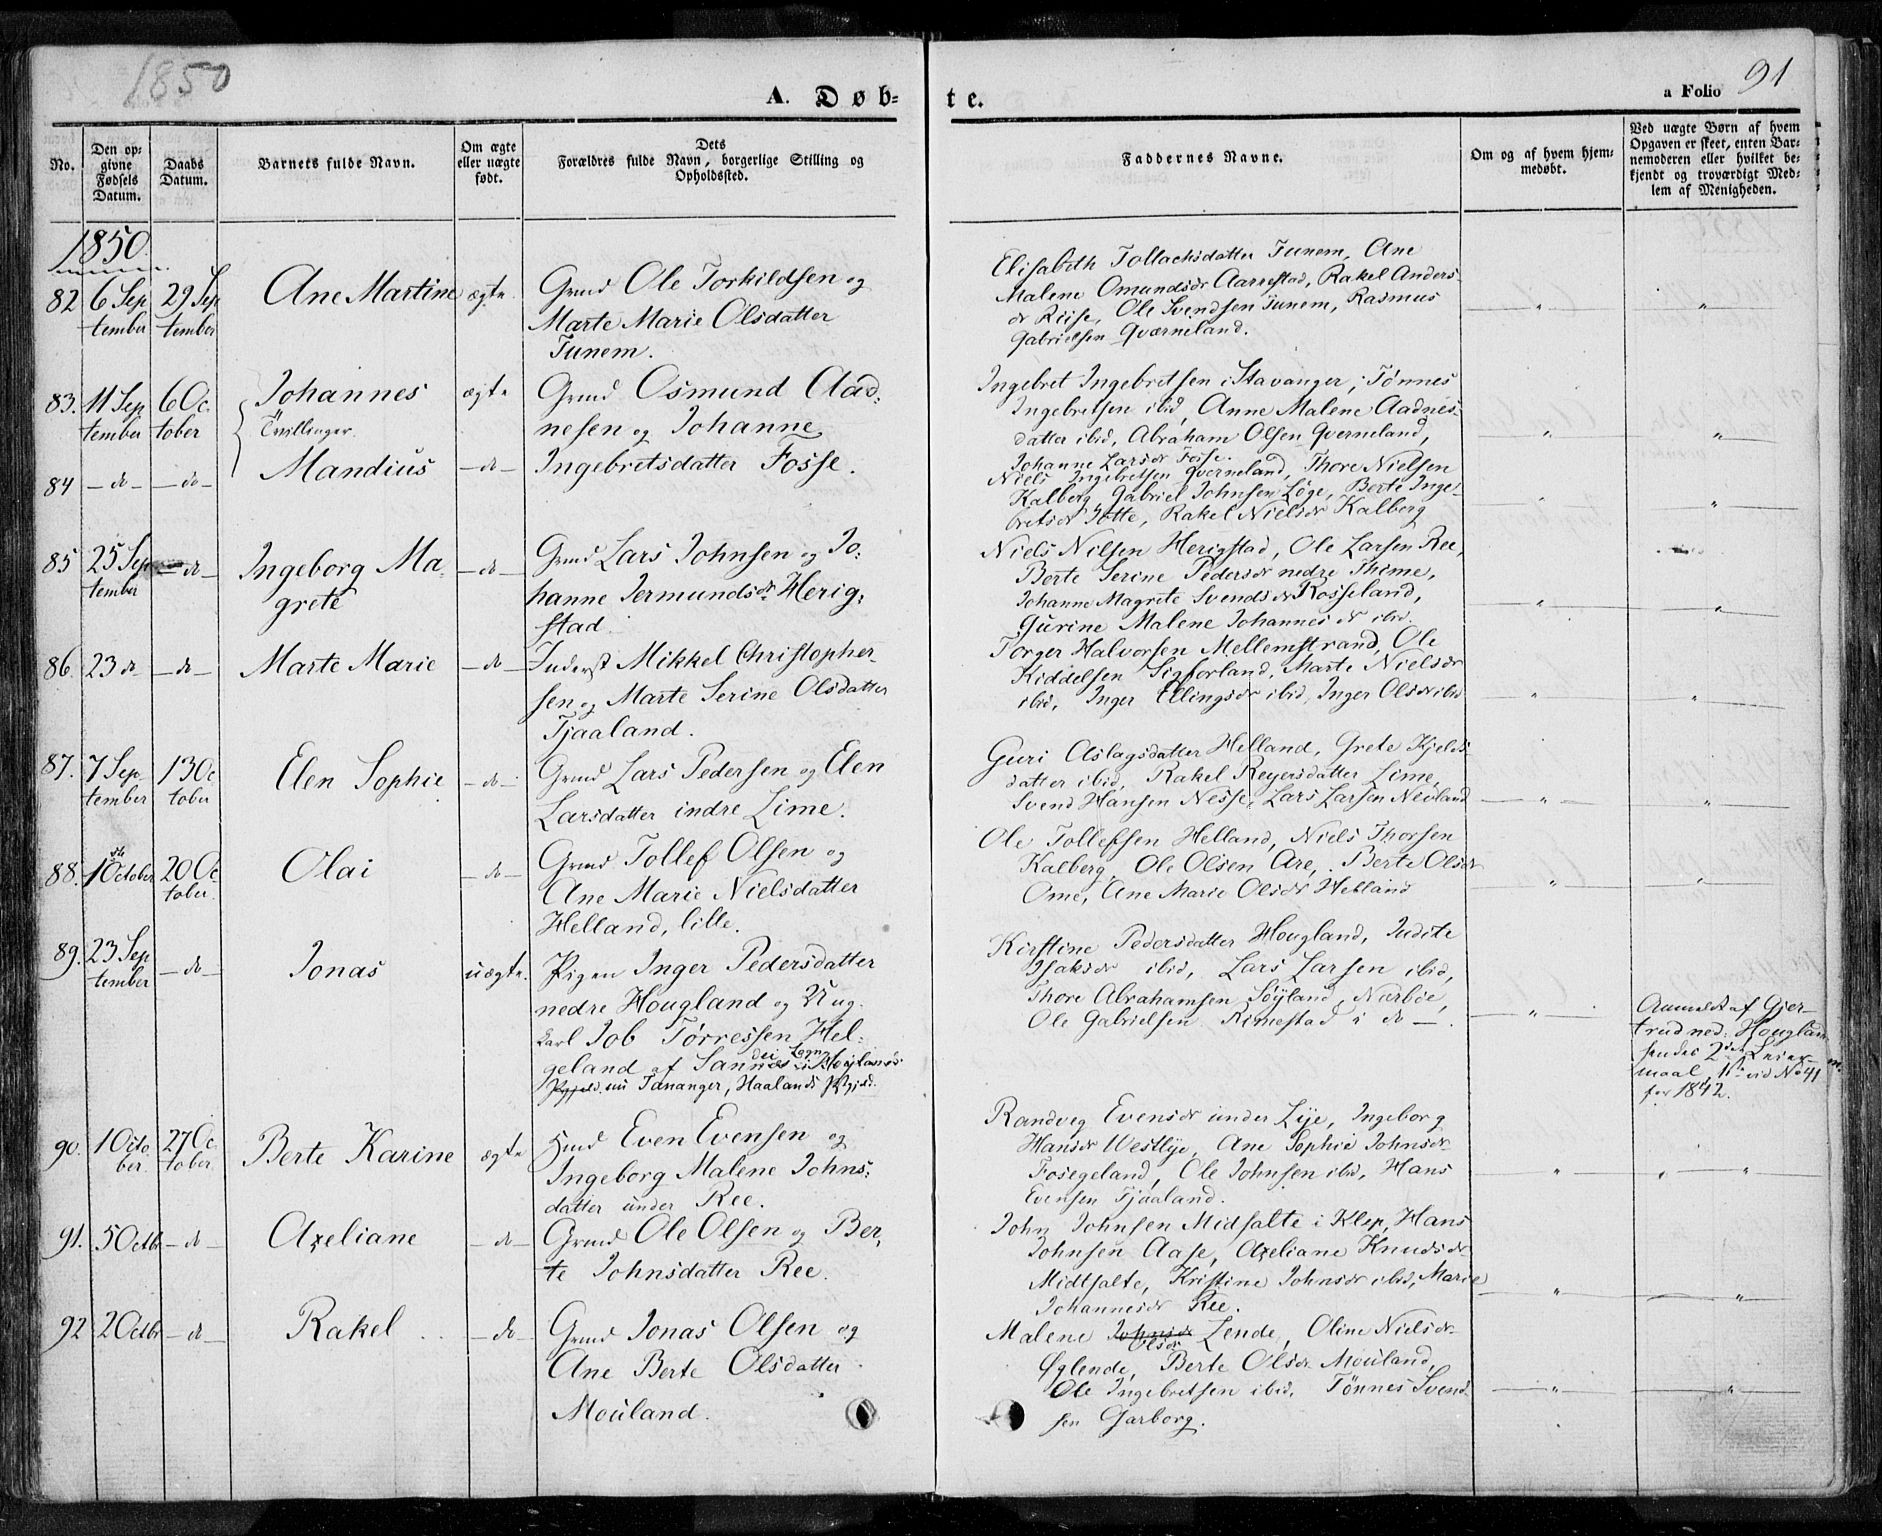 1850
A. Døb-
te.
a Folio 91
No.
Den op-
givne
Fødsels
Datum.
Daabs
Datum.
Barnets fulde Navn.
Om ægte
eller uægte
født.
Dets
Forældres fulde Navn, borgerlige Stilling og
Opholdssted.
Faddernes Navne.
Om og af hvem hjem-
medøbt.
Ved uægte Børn af hvem
Opgaven er skeet, enten Bar-
nemoderen eller hvilket be-
kjendt og troværdigt Med-
lem af Menigheden.
1850.
82 6 Sep 29 Sep Ane Martine ægte. Grmd Ole Torkildsen og
tember tember Marte Marie Olsdatter
Tunem.
Elisabeth Tollachsdatter Tunem, Ane
Malene Omundsdr Aarrestad, Rakel Anders
dr Riise, Ole Svendsen Tunem, Rasmus
Gabrielsen Qværneland.
83. 11 Sep 6 Oc. Johannes ægte Grmd Osmund Aad:
tember tober Tvillinger. nesen og Johanne
84 - do - - do - Mandius - do - Ingebretsdatter Fosse.
Ingebret Ingebretsen i Stavanger, Tønnes
Ingebretsen ibid, Anne Malene Aadnes-
datter ibid, Abraham Olsen Qverneland,
Johanne Larsdr Fosse.
Niels Ingebretsen Qverneland, Thore Nielsen
Kalberg, Gabriel Johnsen Løge, Berte Inge-
bretsdr Totte, Rakel Nielsdr Kalberg
85 25 Sep - do - Ingeborg Ma- - do - Grmd Lars Johnsen og Jo:
tember grete hanne Jermundsdr Herig:
stad.
Niels Nilsen Herigstad, Ole Larsen Ree,
Berte Serine Pedersdr nedre Thime,
Johanne Magrete Svendsdr Rosseland,
Gurine Malene Johannesdr ibid.
86. 23 do - do - Marte Marie - do - Inderst Mikkel Christopher-
sen og Marte Serine Olsdatter
Tjaaland.
Torger Halvorsen Mellemstrand, Ole
Kiddelsen Sigforland, Marte Nielsdr
ibid, Inger Ellingsdr ibid, Inger Olsdr ibid
87. 7 Sep- 13 Oc Elen Sophie - do - Grmd Lars Pedersen og Elen
tember tober Larsdatter indre Lime.
Guri Aslagsdatter Helland, Grete Kjelds
datter ibid, Rakel Reyersdatter Lime,
Svend Hansen Nesse, Lars Larsen Neuland
88. 1 October 20 Oc Olai - do - Grmd Tollef Olsen og
tober. Ane Marie Nielsdatter
Helland, lille.
Ole Tollefsen Helland, Niels Thorsen
Kalberg, Ole Olsen Are, Berte Olsdr
Ome, Ane Marie Olsdr Helland
89. 23 Sep - do - Jonas uægte. Pigen Inger Pedersdatter
tember nedre Hougland og Ung-
karl Job Tørressen Hel-
geland af Sandnes i Høilands
Pgjeld. nu Tananger, Haalands Pgjeld.
Kirstine Pedersdatter Hougland, Judite
Isaksdr ibid, Lars Larsen ibid,
Thore Abrahamsen Søyland, Nærbøe,
Ole Gabrielsen Rimestad i do -.
Anmeldt af Gjer-
trud ned. Hougland
hendes 2det Leier-
maal, 1ste vid No 41
for 1842.
90. 1 Octo- 27 Oc Berte Karine ægte Hmd Even Evensen og
ber. tober. Ingeborg Malene Johns:
datter under Ree.
Randveg Evensdr under Lye, Ingeborg
Hansdr Westlye, Ane Sophie Johnsdr
Fosegeland, Ole Johnsen ibid, Hans
Evensen Tjaaland.
91. 5 Octbr - do - Axeliane - do - Grmd Ole Olsen og Ber,
te Johnsdatter Ree.
John Johnsen Midsalte i Klep, Hans
Johnsen Aase, Axeliane Knudsdr
Midtsalte, Kristine Johnsdr ibid, Marie
Johannesdr Ree.
92 2 Octbr - do - Rakel - do - Grmd Jonas Olsen og
Ane Berte Olsdatter
Mouland.
Malene Johnsdr Olsdr Lende, Oline Nielsdr
Øglende, Berte Olsdr Mouland,
Ole Ingebretsen ibid, Tønnes Svend
sen Garborg.